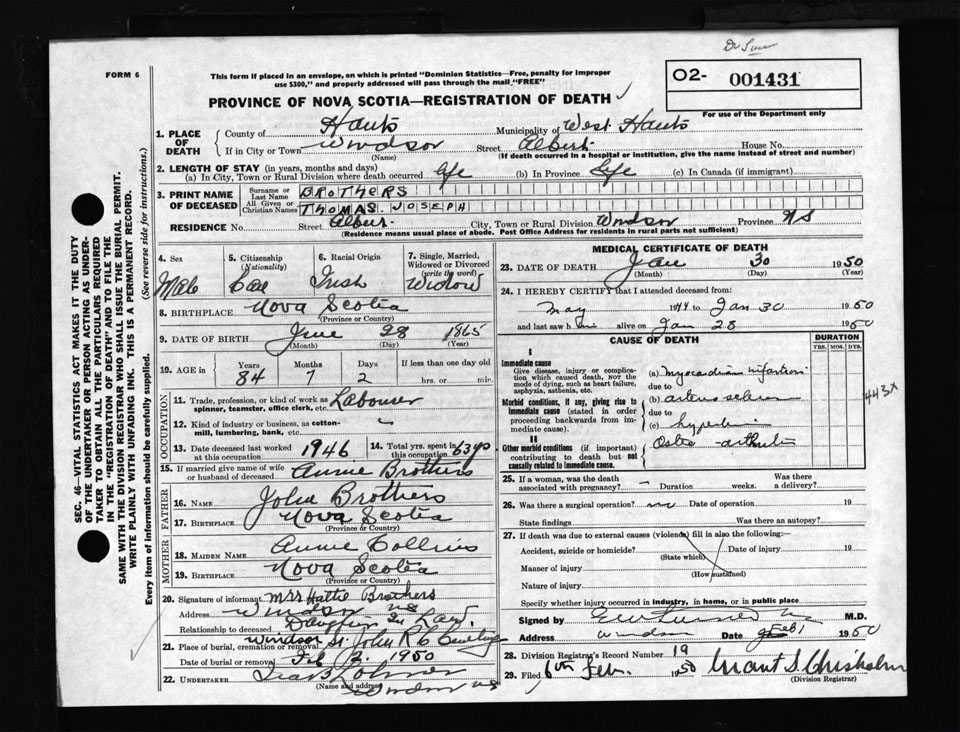 Dr
FORM 6
This form if placed in an envelope, on which is printed "Dominion Statistics—Free, penalty for improper
use $300," and properly addressed will pass through the mail "FREE"
O2- 001431
For use of the Department only
PROVINCE OF NOVA SCOTIA—REGISTRATION OF DEATH ✓
1. PLACE OF DEATH County of Hants Municipality of West Hants
If in City or Town Windsor Street Albert House No.
(Name) (If death occurred in a hospital or institution, give the name instead of street and number)
2. LENGTH OF STAY (in years, months and days)
(a) In City, Town or Rural Division where death occurred life (b) In Province Life (c) In Canada (if immigrant)
3. PRINT NAME OF DECEASED Surname or Last Name BROTHERS
All Given or Christian Names THOMAS. JOSEPH
RESIDENCE No. Street Albert City, Town or Rural Division Windsor Province NS
(Residence means usual place of abode. Post Office Address for residents in rural parts not sufficient)
4. Sex 5. Citizenship (Nationality) 6. Racial Origin 7. Single, Married, Widowed or Divorced (write the word)
Male Can Irish Widow
8. BIRTHPLACE Nova Scotia
(Province or Country)
9. DATE OF BIRTH June 28 1865
(Month) (Day) (Year)
10. AGE in Years Months Days If less than one day old
84 7 2 hrs. or min.
OCCUPATION
11. Trade, profession, or kind of work as spinner, teamster, office clerk, etc. Labourer
12. Kind of industry or business, as cotton-mill, lumbering, bank, etc. -
13. Date deceased last worked at this occupation 1946 14. Total yrs. spent in this occupation 63 yrs
15. If married give name of wife or husband of deceased Annie Brothers
FATHER
16. Name John Brothers
17. Birthplace Nova Scotia
(Province or Country)
MOTHER
18. MAIDEN NAME Annie Collins
19. BIRTHPLACE Nova Scotia
(Province or Country)
20. Signature of informant Mrs Hattie Brothers
Address Windsor NS
Relationship to deceased Daughter In Law.
21. Place of burial, cremation or removal Windsor St. John R C
Date of burial or removal Feb 2. 1950
22. UNDERTAKER
(Name and address) Windsor NS
MEDICAL CERTIFICATE OF DEATH
23. DATE OF DEATH Jan 30 1950
(Month) (Day) (Year)
24. I HEREBY CERTIFY that I attended deceased from:
May 1944 to Jan 30 1950
and last saw h im alive on Jan 28 1950
CAUSE OF DEATH DURATION
YRS. MOS. DYS.
I
Immediate cause
Give disease, injury or complication which caused death, not the mode of dying, such as heart failure, asphyxia, asthenia, etc.
(a) myocardian infarction
due to
Morbid conditions, if any, giving rise to immediate cause (stated in order proceeding backwards from immediate cause).
(b)
due to
(c)
443X
II
Other morbid conditions (if important) contributing to death but not causally related to immediate cause.
Osteo-arthritis
25. If a woman, was the death associated with pregnancy? - Duration weeks. Was there a delivery?
26. Was there a surgical operation? no Date of operation 19
State findings Was there an autopsy?
27. If death was due to external causes (violence) fill in also the following:
Accident, suicide or homicide? Date of injury 19
(State which)
Manner of injury
(How sustained)
Nature of injury
Specify whether injury occurred in industry, in home, or in public place
Signed by M.D.
Address Windsor Date Feb 1 1950
28. Division Registrar's Record Number 19
29. Filed 6th Feb. 1950 Grant S. Chisholm
(Division Registrar)
SEC. 46—VITAL STATISTICS ACT MAKES IT THE DUTY
OF THE UNDERTAKER OR PERSON ACTING AS UNDER-
TAKER TO OBTAIN ALL THE PARTICULARS REQUIRED
IN THE "REGISTRATION OF DEATH" AND TO FILE THE
SAME WITH THE DIVISION REGISTRAR WHO SHALL ISSUE THE BURIAL PERMIT.
WRITE PLAINLY WITH UNFADING INK. THIS IS A PERMANENT RECORD.
Every item of information should be carefully supplied. (See reverse side for instructions.)